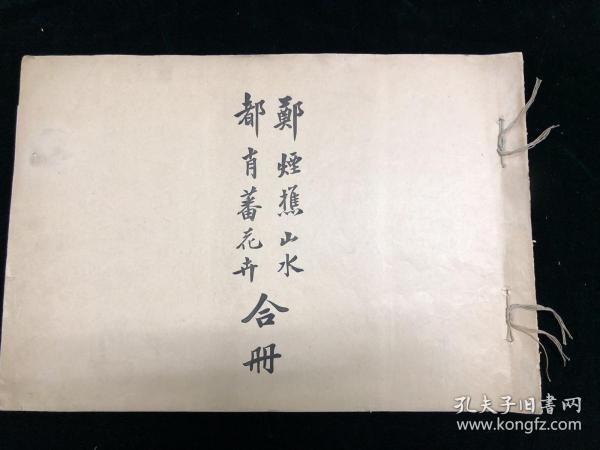 鄭煙樵山水
都肖蕃花卉
合冊
孔夫子旧書网
www.kongfz.com